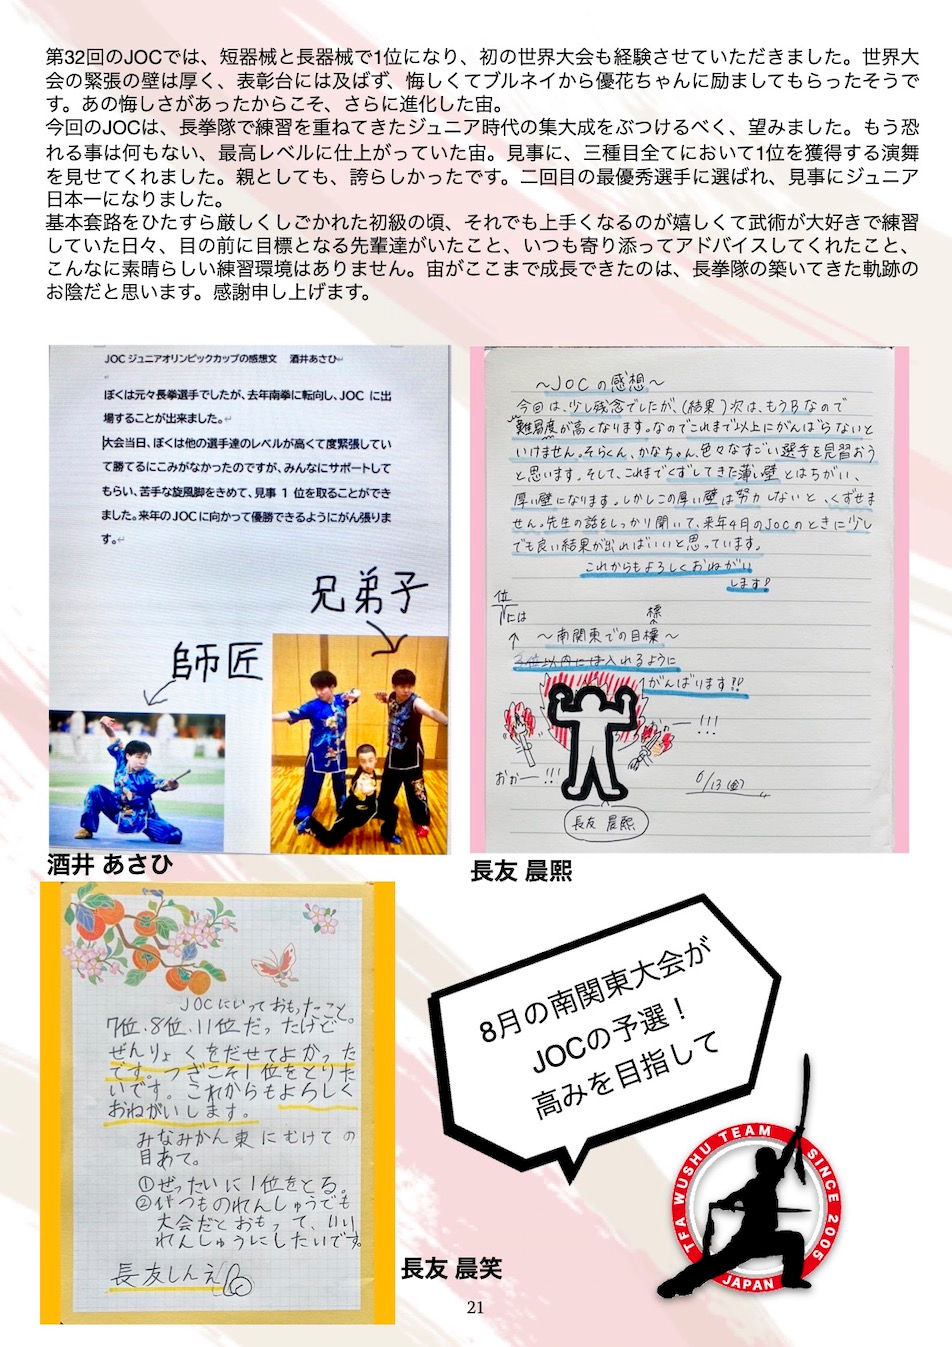 第32回のJOCでは、短器械と長器械で1位になり、初の世界大会も経験させていただきました。世界大
会の緊張の壁は厚く、表彰台には及ばず、悔しくてブルネイから優花ちゃんに励ましてもらったそうで
す。あの悔しさがあったからこそ、さらに進化した宙。
今回のJOCは、長拳隊で練習を重ねてきたジュニア時代の集大成をぶつけるべく、望みました。もう恐
れる事は何もない、最高レベルに仕上がっていた宙。見事に、三種目全てにおいて1位を獲得する演舞
を見せてくれました。親としても、誇らしかったです。二回目の最優秀選手に選ばれ、見事にジュニア
日本一になりました。
基本套路をひたすら厳しくしごかれた初級の頃、それでも上手くなるのが嬉しくて武術が大好きで練習
していた日々、目の前に目標となる先輩達がいたこと、いつも寄り添ってアドバイスしてくれたこと、
こんなに素晴らしい練習環境はありません。宙がここまで成長できたのは、長拳隊の築いてきた軌跡の
お陰だと思います。感謝申し上げます。
JOC ジュニアオリンピックカップの感想文　酒井あさひ
ぼくは元々長拳選手でしたが、去年南拳に転向し、JOC に出
場することが出来ました。
大会当日、ぼくは他の選手達のレベルが高くて度緊張してい
て勝てるにこみがなかったのですが、みんなにサポートして
もらい、苦手な旋風脚をきめて、見事 1 位を取ることができ
ました。来年の JOC に向かって優勝できるようにがん張りま
す。
兄弟子
師匠
酒井 あさひ
～JOCの感想～
今回は、少し残念でしたが、(結果)次は、もうBなので
難易度が高くなります。なのでこれまで以上にがんばらないと
いけません。そらくん、かなちゃん、色々なすごい選手を見習おう
と思います。そして、これまでくずしてきた薄い壁とはちがい、
厚い壁になります。しかしこの厚い壁は努力しないと、くずせま
せん。先生の話をしっかり聞いて、来年4月のJOCのときに少し
でも良い結果が出ればいいと思っています。
これからもよろしくおねがい
します!
位
には
標
～南関東での目標～
3位以内には入れるように
がんばります!!
おかー!!!
おかー!!!
6/13(金)
長友 晨熙
長友 晨熙
JOCにいっておもったこと
7位、8位、11位だったけど。
ぜんりょくをだせてよかった
です。つぎこそ1位をとりた
いです。これからもよろしく
おねがいします。
みなみかん東にむけての
目あて。
①ぜったいに1位をとる。
②いつものれんしゅうでも
大会だとおもって、いい
れんしゅうにしたいです。
長友しんえ
長友 晨笑
8月の南関東大会が
JOCの予選！
高みを目指して
TFA WUSHU TEAM SINCE 2005
JAPAN
21